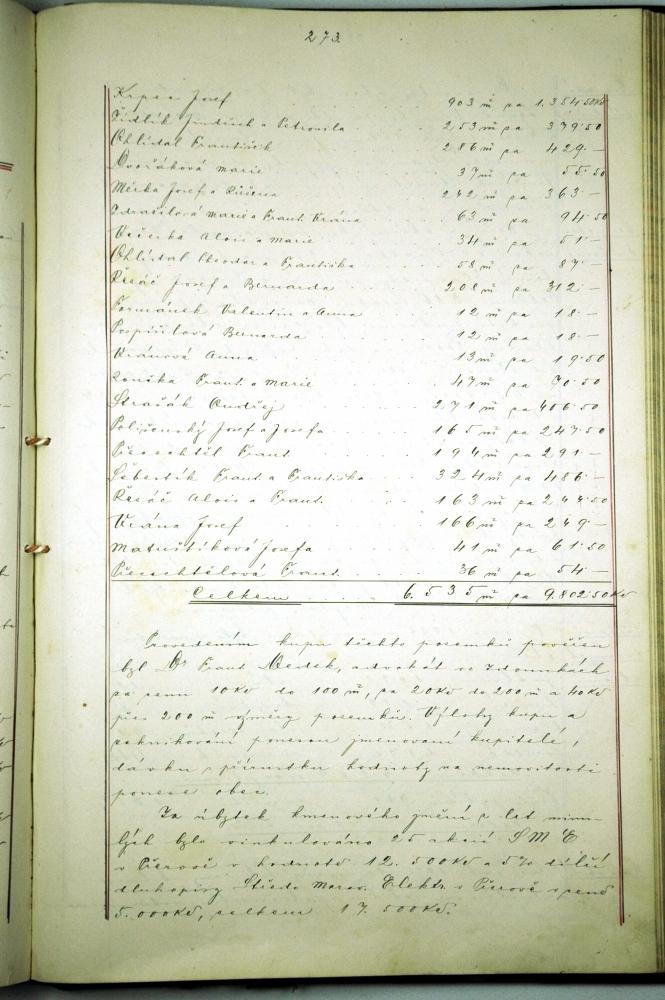 273.
Krpec Josef 903 m² za 1.354.50 Kč
Šidlík Jindřich a Petronila 253 m² za 379.50
Ohlídal František 286 m² za 429.—
Dvořáková Marie 37 m² za 55.50
Měrka Josef a Růžena 242 m² za 363.—
Zdražilová Marie a Frant. Vrána 63 m² za 94.50
Večerka Alois a Marie 34 m² za 51.—
Ohlídal Theodor a Františka 58 m² za 87.—
Řezáč Josef a Bernarda 208 m² za 312.—
Formánek Valentin a Anna 12 m² za 18.—
Pospíšilová Bernarda 12 m² za 18.—
Vránová Anna 13 m² za 19.50
Konůka Frant. a Marie 47 m² za 70.50
Strašák Ondřej 271 m² za 406.50
Polišenský Josef a Josefa 165 m² za 247.50
Přecechtěl Frant. 194 m² za 291.—
Šebestík Frant. a Františka 324 m² za 486.—
Řezáč Alois a Frant. 163 m² za 244.50
Vrána Josef 166 m² za 249.—
Matuštíková Josefa 41 m² za 61.50
Přecechtělová Frant. 36 m² za 54.—
Celkem 6.535 m² za 9.802.50 Kč
Provedením kupu těchto pozemků pověřen
byl Dr Frant. Medek, advokát ve Zdounkách
za cenu 10 Kč do 100 m², za 20 Kč do 200 m² a 40 Kč
přes 200 m² výměry pozemků. Výlohy kupu a
zaknihování ponesou jmenovaní kupitelé,
dávku z přírustku hodnoty na nemovitosti
ponese obec.
Za úbytek kmenového jmění z let minu-
lých bylo vinkulováno 25 akcií SME
v Přerově v hodnotě 12.500 Kč a 5% dílčí
dluhopisy Středo morav. Elektr. v Přerově v ceně
5.000 Kč, celkem 17.500 Kč.